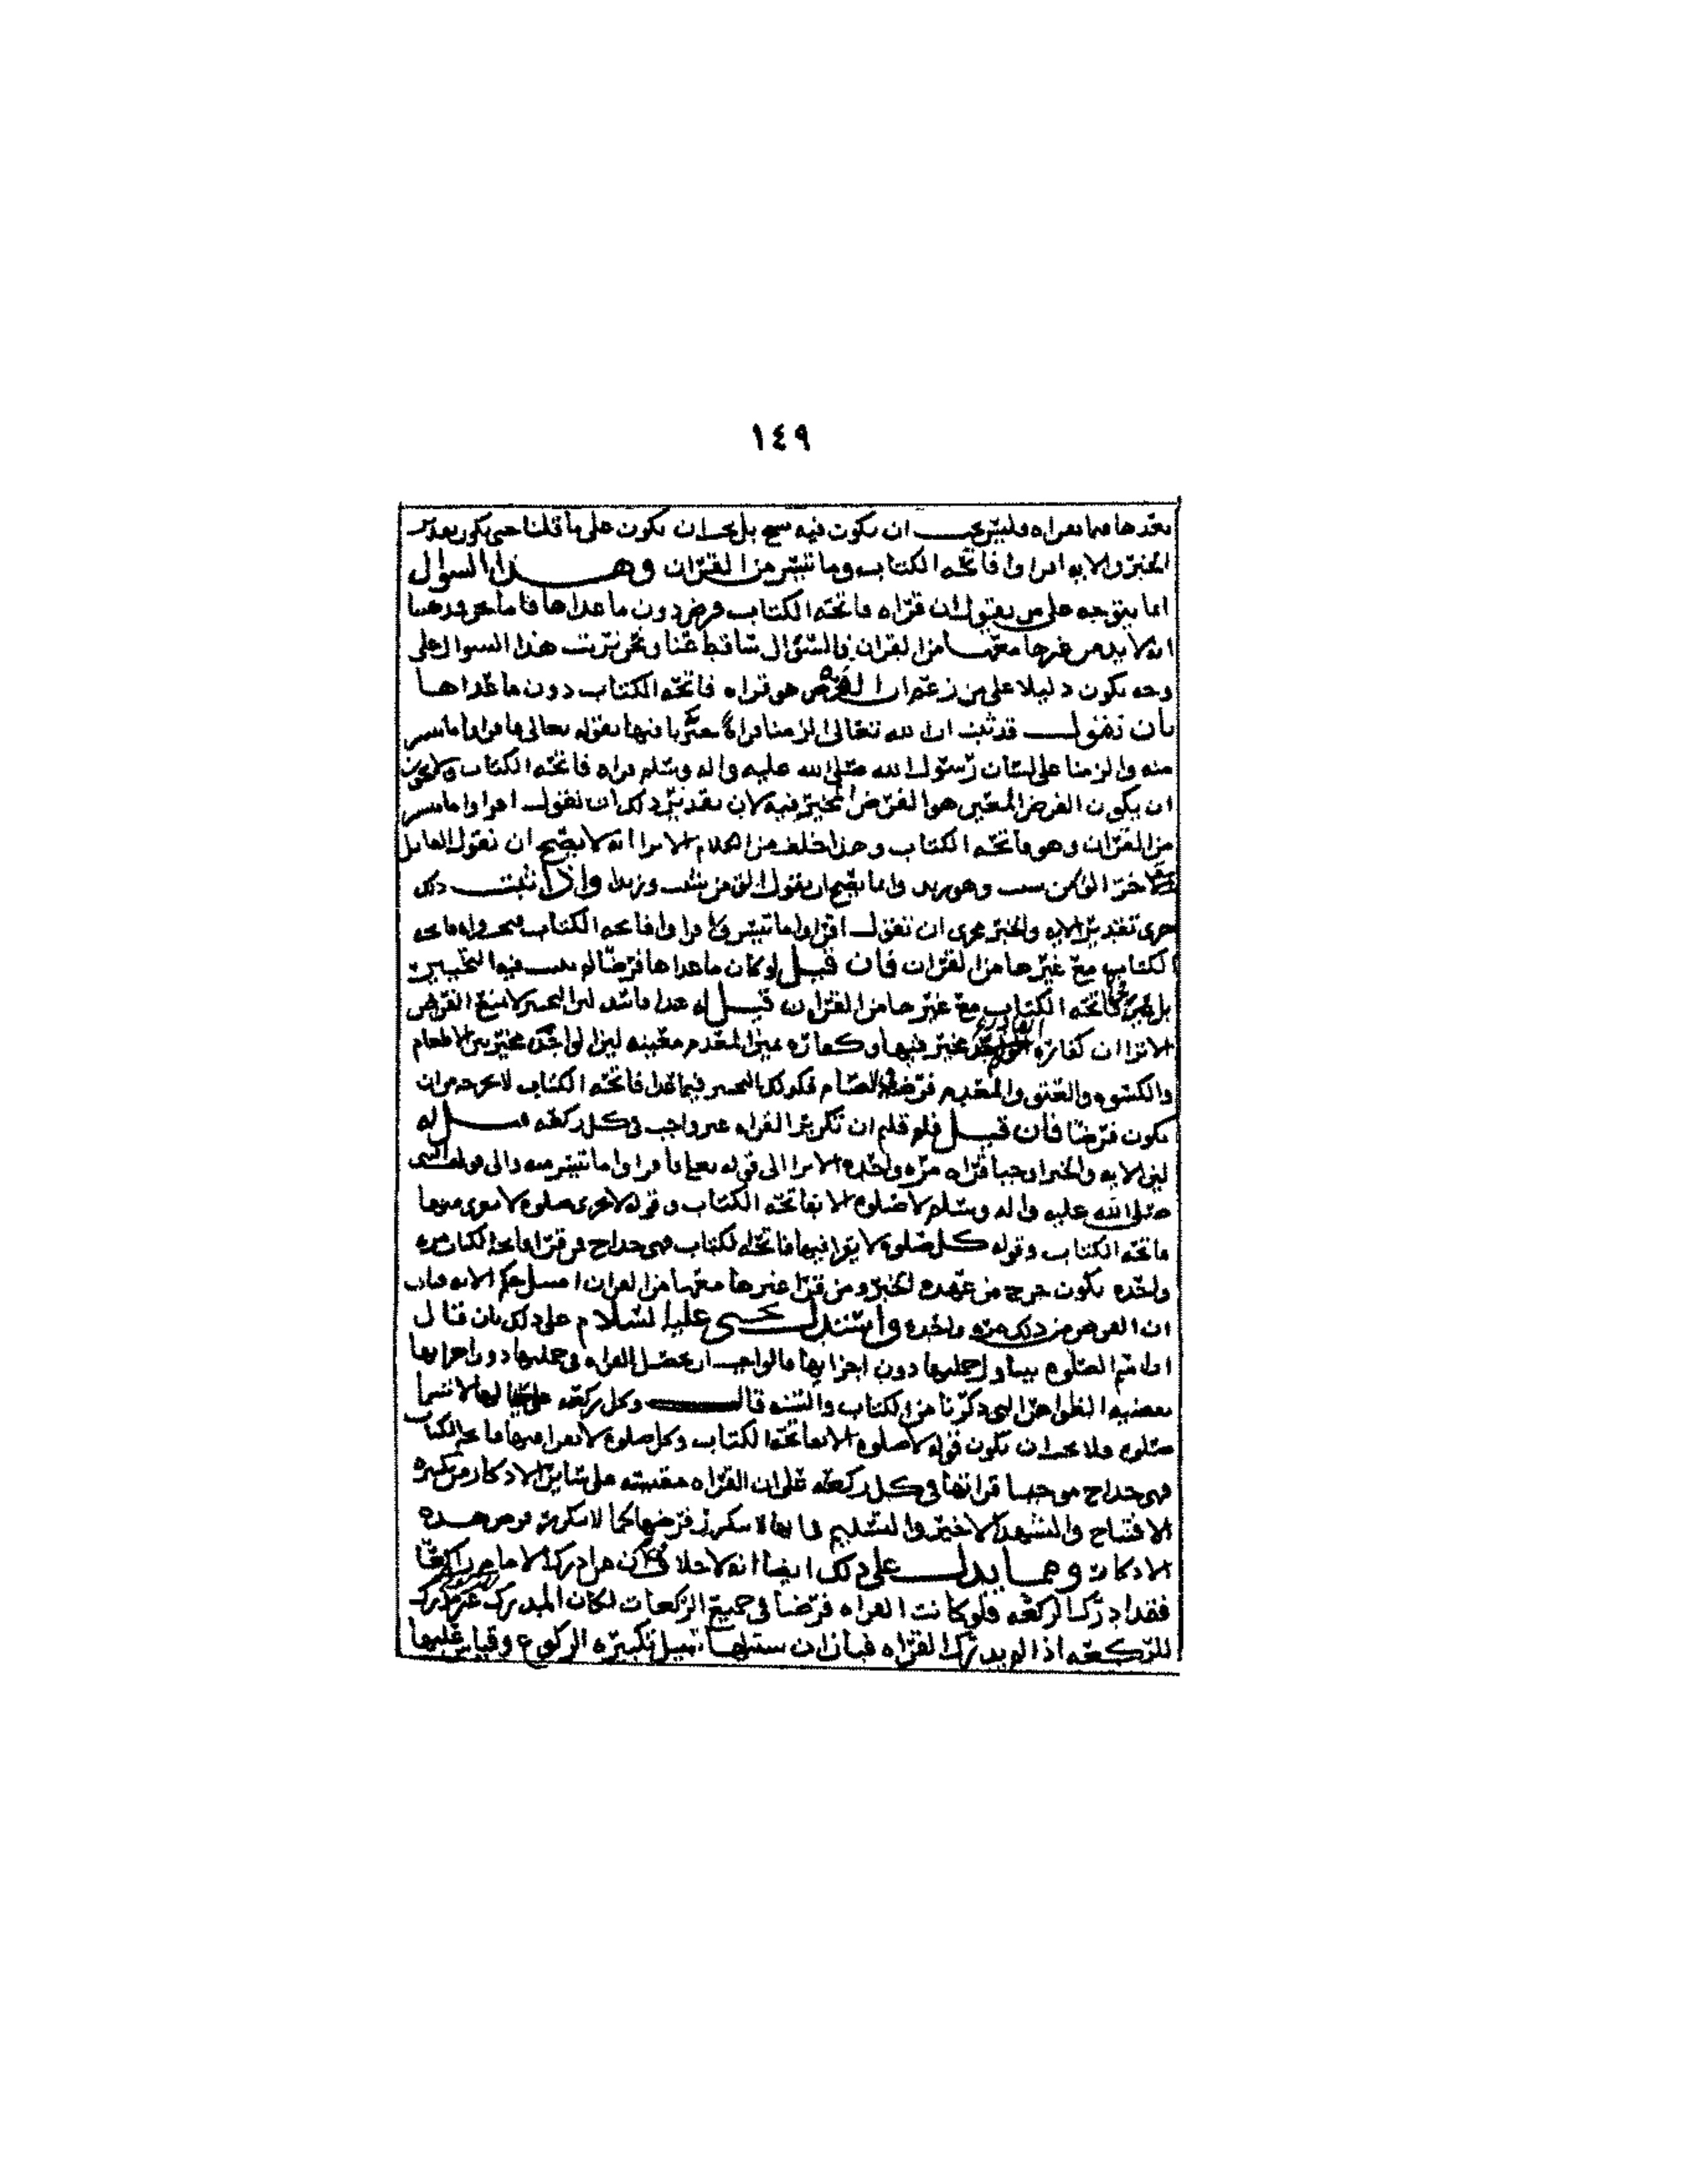 ١٤٩
بعدها مما نقراه وليس يجب ان يكون فيه بل يجب ان يكون على ما قلنا حتى يكون تقدير
الخبر والايه اقراوا فاتحة الكتاب وما تيسر من القران وهذا السوال
انما يتوجه على من يقول ان قراه فاتحة الكتاب فرض دون ما عداها فاما نحن فعندنا
انه لا بد من غيرها معها من القران فالسؤال ساقط عنا ونحن نرتب هذا السوال على
وجه يكون دليلا على من زعم ان الفرض هو قراه فاتحة الكتاب دون ما عداها
بان نقول قد ثبت ان الله تعالى الزمنا قراة خيرنا فيها بقوله تعالى فاقراوا ما تيسر
منه والزمنا على لسان رسول الله صلى الله عليه واله وسلم قراه فاتحة الكتاب ولا يجوز
ان يكون الفرض المعين هو الفرض المخير فيه لان تقدير ذلك ان نقول اقراوا ما تيسر
من القران وهو فاتحة الكتاب وهذا خلف من الكلام الا ترا انه لا يصح ان يقول القايل
الق من شيت وهو زيد وانما يصح ان يقول الق من شيت وزيدا واذا ثبت ذلك
جرى تقدير الايه والخبر مجرى ان نقول اقراوا ما تيسر واقراوا فاتحة الكتاب فيجب قراه فاتحة
الكتاب مع غيرها من القران فان قيل لو كان ما عداها فرضا لم يثبت فيه التخيير
بل فاتحة الكتاب مع غيرها من القران قيل له هذا فاسد لان التخيير لا يمنع الفرض
الا ترا ان كفارة مخير فيها وكفارة يمين المعدم معينه لان الواجد مخير بين الاطعام
والكسوه والعتق والمعدم فرضه الصيام فكذلك التخيير فيما عدا فاتحة الكتاب لا يخرجه من ان
يكون فرضا فان قيل فلم قلتم ان تكرير القراه غير واجب في كل ركعه قيل له
لان الايه والخبر اوجبا قراه مره واحده الا ترا الى قوله تعالى فاقراوا ما تيسر منه والى قول النبي
صلى الله عليه واله وسلم لا صلوة الا بفاتحة الكتاب وقوله لا تجزى صلوة لا يقرى فيها
فاتحة الكتاب وقوله كل صلوة لا يقرا فيها فاتحة الكتاب فهى خداج فمن قرا فاتحة الكتاب مره
واحده يكون خرج من عهده الخبر ومن قرا غيرها معها من القران امتثل حكم الايه فبان
ان الفرض من ذلك مره واحده واستدل يحيى عليه السلام على ذلك بان قال
ان اسم الصلوة يتناول جملتها دون اجزايها فالواجب ان تحصل القراه في جملتها دون اجزايها
بقضيه الظواهر التي ذكرنا من الكتاب والسنه قال وكل ركعه على حيالها لا تسما
صلوة فلا يجب ان يكون قوله لا صلوة الا بفاتحة الكتاب وكل صلوة لا يقرا فيها فاتحة الكتاب
فهى خداج موجبا قراتها في كل ركعه على ان القراه مقيسه على ساير الاذكار من تكبيره
الافتتاح والتشهد الاخير والتسليم في انها لا يتكرر فرضها كما لا يتكرر فرض هذه
الاذكار ومما يدل على ذلك ايضا انه لا خلاف ان من ادرك الامام راكعا
فقد ادرك الركعه فلو كانت القراه فرضا في جميع الركعات لكان المدرك غير مدرك
للركعه اذا لم يدرك القراه فبان ان سبيلها سبيل تكبيره الركوع وقياس عليها